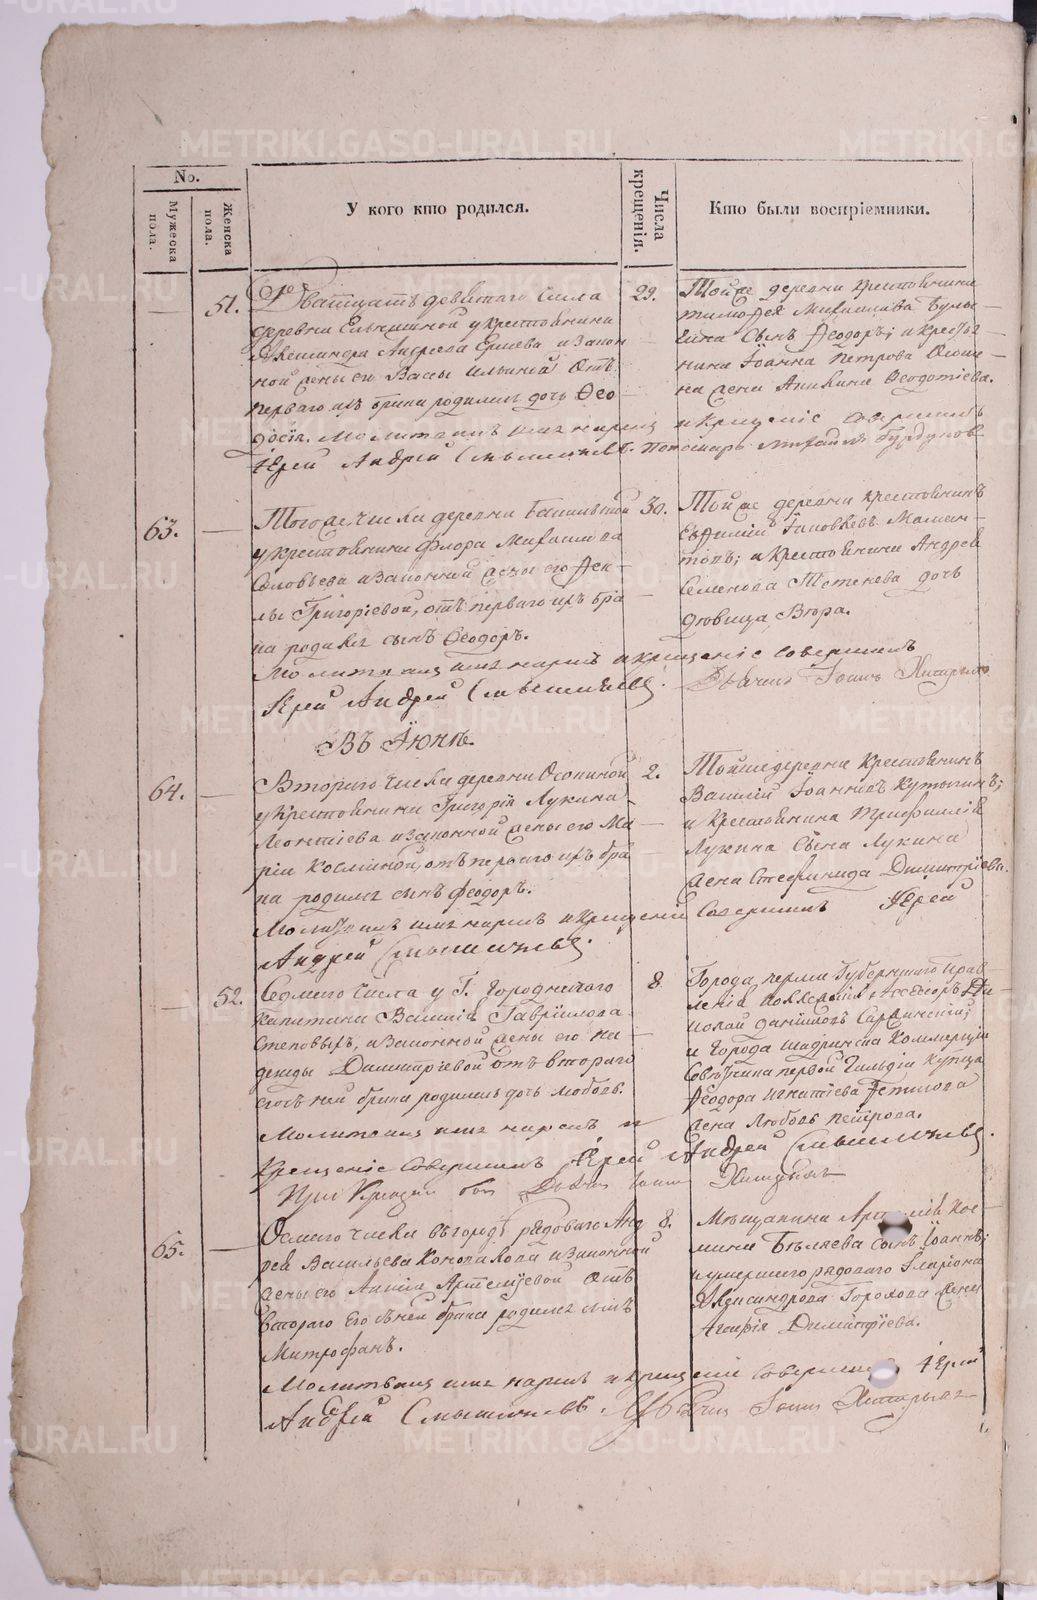 No.
Мужеска пола.
Женска пола.
У кого кто родился.
Числа крещенія.
Кто были воспріемники.
51.
Дватцать девятаго числа
деревни Ельничной у крестьянина
Александра Андреева Ершева и закон
ной жены его Васы Ильиной отъ
перваго ихъ брака родилась дочь Ѳео
досія. Молитвалъ имя нарекъ и крещеніе совершилъ
Іерей Андрей Смышляевъ. Пономарь Михайлъ
29.
Тойже деревни крестьянина
Тимоѳея Михайлова
сынъ Ѳеодоръ; и крестья
нина Іоанна Петрова
на жена Акилина Ѳеодотіева.
63.
Тогоже числа деревни
у крестьянина Флора Михайлова
Соловьева и законной жены его Ѳек
лы Григорьевой, отъ перваго ихъ бра
ка родился сынъ Ѳеодоръ.
Молитвалъ имя нарекъ и крещеніе совершилъ
Іерей Андрей Смышляевъ.
30.
Тойже деревни крестьянинъ
Евѳимій Іаковлевъ
и крестьянина Андрея
Семенова дочь
дѣвица Вѣра.
Дьячекъ Іоаннъ
Въ Іюнѣ.
64.
Втораго числа деревни Осониной
у крестьянина Григорія Лукина
Леонтіева и законной жены его Ма
ріи Космыной, отъ перваго ихъ бра
ка родился сынъ Ѳеодоръ.
Молитвалъ имя нарекъ и крещеніе совершилъ Іерей
Андрей Смышляевъ.
2.
Тойже деревни крестьянинъ
Василій Іоанновъ
и крестьянина
Лукина сына Лукина
жена Стефанида Димитріева.
52.
Седмаго числа у Г. Городничаго
Капитана Василія Гавріилова
и законной жены его На
дежды Димитріевой отъ втораго
его съ ней брака родилась дочь Любовь.
Молитвалъ имя нарекъ и
крещеніе совершилъ Іерей Андрей Смышляевъ.
При крещеніи былъ Дьячекъ Іоаннъ
8
Города Перми Губернскаго Прав
ленія Коллежскій Ассессоръ Ни
колай Даниловъ
и города Шадринска Коммерціи
Совѣтника первой гильдіи купца
Ѳеодора Игнатіева Фетисова
жена Любовь Петрова.
65.
Осмаго числа въ городѣ у рядоваго Анд
рея Васильева Коновалова и законной
жены его Анны Артемьевой отъ
втораго его съ ней брака родился сынъ
Митрофанъ.
Молитвалъ имя нарекъ и крещеніе совершилъ Іерей
Андрей Смышляевъ. Дьячекъ Іоаннъ
8.
Мѣщанина Кос
мина Бѣляева сынъ Іоаннъ;
и умершаго рядоваго Иларіона
Александрова Горохова жена
Агафія Димитріева.
METRIKI.GASO-URAL.RU